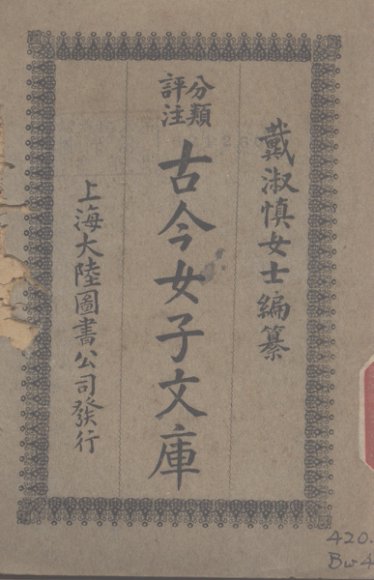 戴淑慎女士編纂
分類
評注
古今女子文庫
上海大陸圖書公司發行
420.
Bw4